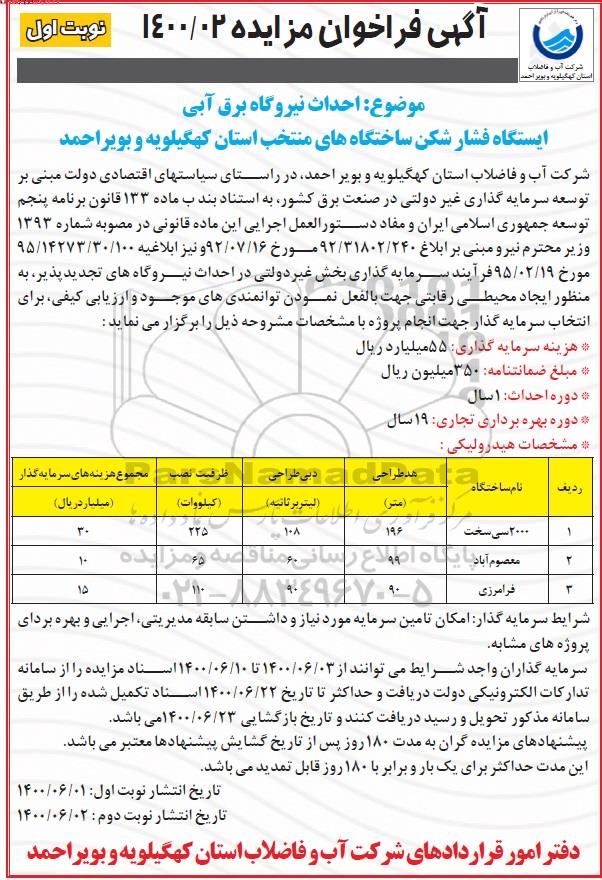 آگهی فراخوان مزایده ۱۴۰۰/۰۲
نوبت اول
شرکت آب و فاضلاب
استان کهگیلویه و بویر احمد
موضوع: احداث نیروگاه برق آبی
ایستگاه فشار شکن ساختگاه های منتخب استان کهگیلویه و بویر احمد
شرکت آب و فاضلاب استان کهگیلویه و بویر احمد، در راستای سیاستهای اقتصادی دولت مبنی بر
توسعه سرمایه گذاری غیر دولتی در صنعت برق کشور، به استناد بند ب ماده ۱۳۳ قانون برنامه پنجم
توسعه جمهوری اسلامی ایران و مفاد دستورالعمل اجرایی این ماده قانونی در مصوبه شماره ۱۳۹۳
وزیر محترم نیرو مبنی بر ابلاغ ۹۲/۳۱۸۰۲/۲۴۰ مورخ ۹۲/۰۷/۱۶ و نیز ابلاغیه ۹۵/۱۴۲۷۳/۳۰/۱۰۰
مورخ ۹۵/۰۲/۱۹ فرآیند سرمایه گذاری بخش غیردولتی در احداث نیروگاه های تجدیدپذیر، به
منظور ایجاد محیطی رقابتی جهت بالفعل نمودن توانمندی های موجود و ارزیابی کیفی، برای
انتخاب سرمایه گذار جهت انجام پروژه با مشخصات مشروحه ذیل را برگزار می نماید :
* هزینه سرمایه گذاری: ۵۵ میلیارد ریال
* مبلغ ضمانتنامه: ۳۵۰ میلیون ریال
* دوره احداث: ۱ سال
* دوره بهره برداری تجاری: ۱۹ سال
* مشخصات هیدرولیکی :
ردیف نام ساختگاه هد طراحی (متر) دبی طراحی (لیتر بر ثانیه) ظرفیت نصب (کیلووات) مجموع هزینه های سرمایه گذار (میلیارد ریال)
۱ ۲۰۰۰ سی سخت ۱۹۶ ۱۰۸ ۲۲۵ ۳۰
۲ معصوم آباد ۹۹ ۶۰ ۶۵ ۱۰
۳ فرامرزی ۹۰ ۹۰ ۱۱۰ ۱۵
شرایط سرمایه گذار: امکان تامین سرمایه مورد نیاز و داشتن سابقه مدیریتی، اجرایی و بهره بردای
پروژه های مشابه.
سرمایه گذاران واجد شرایط می توانند از ۱۴۰۰/۰۶/۰۳ تا ۱۴۰۰/۰۶/۱۰ اسناد مزایده را از سامانه
تدارکات الکترونیکی دولت دریافت و حداکثر تا تاریخ ۱۴۰۰/۰۶/۲۲ اسناد تکمیل شده را از طریق
سامانه مذکور تحویل و رسید دریافت کنند و تاریخ بازگشایی ۱۴۰۰/۰۶/۲۳ می باشد.
پیشنهادهای مزایده گران به مدت ۱۸۰ روز پس از تاریخ گشایش پیشنهادها معتبر می باشد.
این مدت حداکثر برای یک بار و برابر با ۱۸۰ روز قابل تمدید می باشد.
تاریخ انتشار نوبت اول: ۱۴۰۰/۰۶/۰۱
تاریخ انتشار نوبت دوم : ۱۴۰۰/۰۶/۰۲
دفتر امور قراردادهای شرکت آب و فاضلاب استان کهگیلویه و بویر احمد
ParsNamadData
پایگاه اطلاع رسانی مناقصه و مزایده
۰۲۱-۸۸۳۴۹۶۷۰-۵